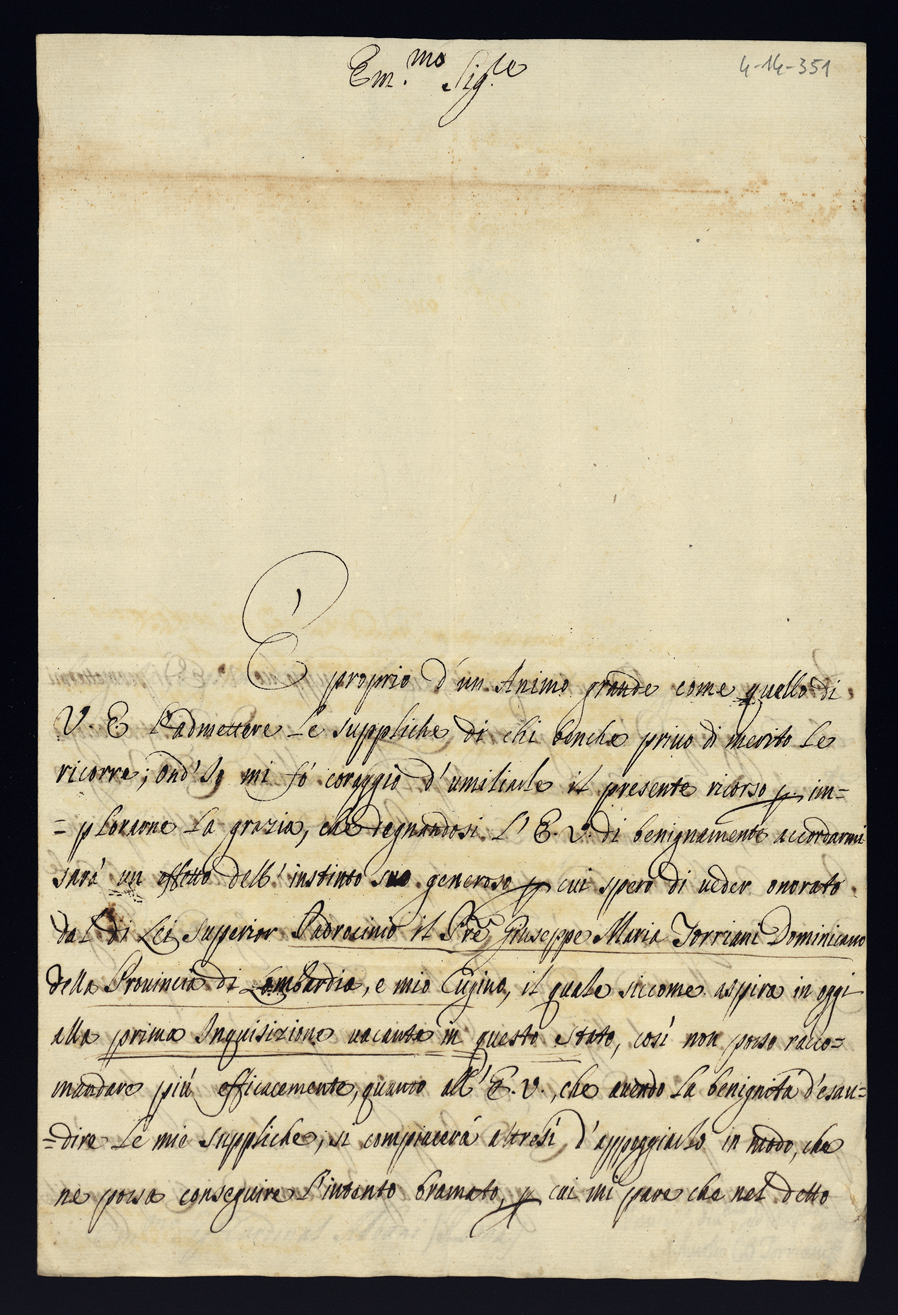 Em.mo Sig.le
4-14-351
È proprio d'un Animo grande come quello di
V. E. l'admettere le suppliche di chi benche priuo di merito le
ricorre; ond'Io mi fò coraggio d'umiliarle il presente ricorso p. im=
=ploraone la grazia, che degnandosi l'E. V. di benignamente accordarmi
sarà un effetto dell'instinto suo generoso p cui spero di ueder onorato
dal di Lei superior Padrocinio il Pre Giuseppe Maria Torriani Dominicano
della Prouincia di Lombardia, e mio Cugino, il quale siccome aspira in oggi
alla prima Inquisizione uacante in questo stato, così non posso racco=
mandare più efficacemente, quanto all'E. V., che auendo la benignità d'esau=
=dire le mie suppliche, si compiacerà altresì d'appoggiarlo in modo, che
ne possa conseguire l'intento bramato, p cui mi pare che nel detto